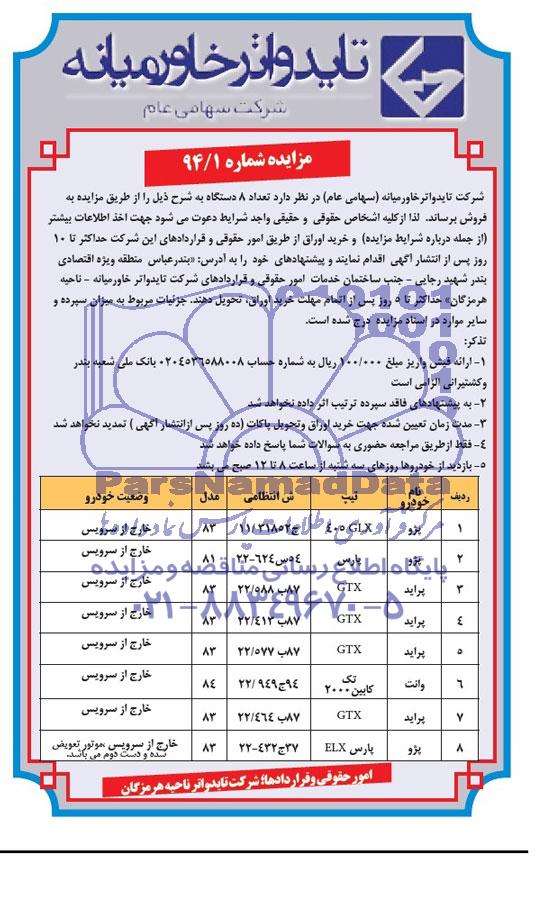 تایدواتر خاورمیانه
شرکت سهامی عام
مزایده شماره ۹۴/۱
شرکت تایدواترخاورمیانه (سهامی عام) در نظر دارد تعداد ۸ دستگاه به شرح ذیل را از طریق مزایده به
فروش برساند. لذا ازکلیه اشخاص حقوقی و حقیقی واجد شرایط دعوت می شود جهت اخذ اطلاعات بیشتر
(از جمله درباره شرایط مزایده) و خرید اوراق از طریق امور حقوقی و قراردادهای این شرکت حداکثر تا ۱۰
روز پس از انتشار آگهی اقدام نمایند و پیشنهادهای خود را به آدرس: «بندرعباس منطقه ویژه اقتصادی
بندر شهید رجایی - جنب ساختمان خدمات امور حقوقی و قراردادهای شرکت تایدواتر خاورمیانه - ناحیه
هرمزگان» حداکثر تا ۵ روز پس از اتمام مهلت خرید اوراق، تحویل دهند. جزئیات مربوط به میزان سپرده و
سایر موارد در اسناد مزایده درج شده است.
تذکر:
۱- ارائه فیش واریز مبلغ ۱۰۰/۰۰۰ ریال به شماره حساب ۰۲۰۴۵۳۶۵۸۸۰۰۸ بانک ملی شعبه بندر
وکشتیرانی الزامی است
۲- به پیشنهادهای فاقد سپرده ترتیب اثر داده نخواهد شد
۳- مدت زمان تعیین شده جهت خرید اوراق وتحویل پاکات (ده روز پس ازانتشار آگهی) تمدید نخواهد شد
۴- فقط ازطریق مراجعه حضوری به سوالات شما پاسخ داده خواهد شد
۵- بازدید از خودروها روزهای سه شنبه از ساعت ۸ تا ۱۲ صبح می باشد
ParsNamadData
پایگاه اطلاع رسانی مناقصه و مزایده
۰۲۱-۸۸۳۴۹۶۷۰-۵
ردیف نام خودرو تیپ ش انتظامی مدل وضعیت خودرو
۱ پژو ۴۰۵ GLX ۱۱/۳۱۸۵۲ج ۸۳ خارج از سرویس
۲ پژو پارس ۵۴س۶۲۴-۲۲ ۸۱ خارج از سرویس
۳ پراید GTX ۸۷ب ۲۲/۵۸۸ ۸۳ خارج از سرویس
۴ پراید GTX ۸۷ب ۲۲/۴۱۳ ۸۳ خارج از سرویس
۵ پراید GTX ۸۷ب ۲۲/۵۷۷ ۸۳ خارج از سرویس
۶ وانت تک کابین۲۰۰۰ ۹۴ج۹۴۹ /۲۲ ۸۴ خارج از سرویس
۷ پراید GTX ۸۷ب ۲۲/۴۶۴ ۸۳ خارج از سرویس
۸ پژو پارس ELX ۳۷ج۴۳۲-۲۲ ۸۳ خارج از سرویس ،موتور تعویض شده و دست دوم می باشد.
امور حقوقی و قراردادها؛ شرکت تایدواتر ناحیه هرمزگان